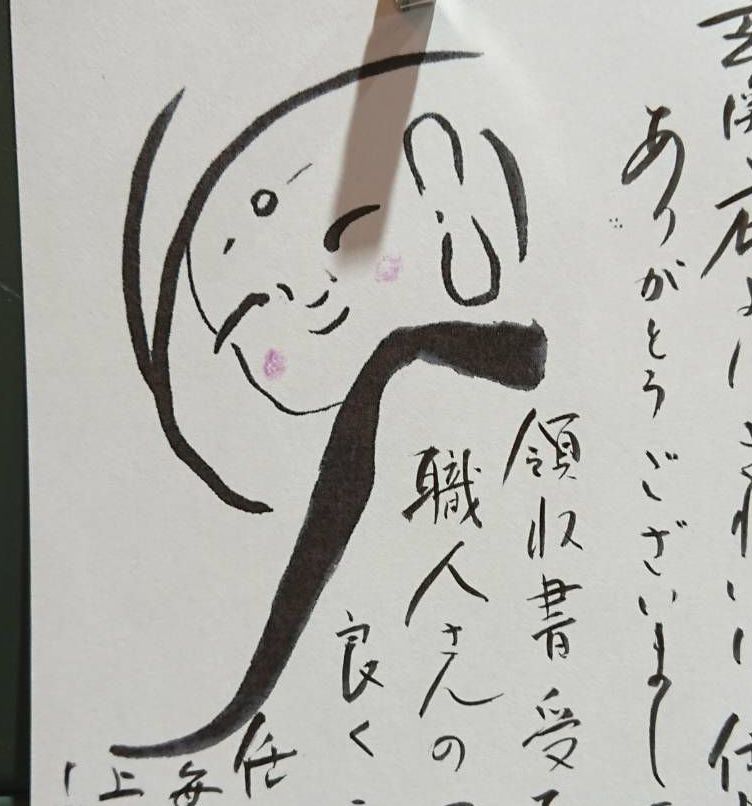 玄関 石 きれいに仕
ありがとうございまし
領収書受
職人さんの
良く
任
毎
上